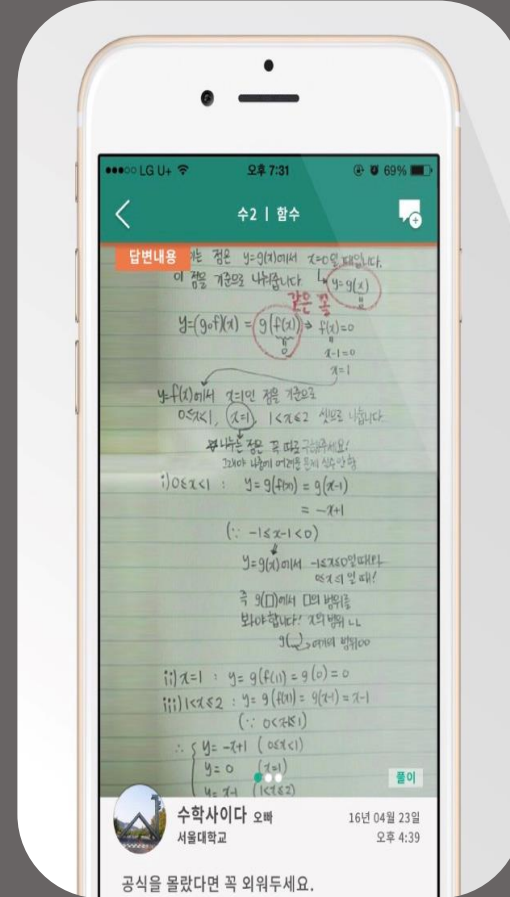 LG U+ 오후 7:31 69%
수2 | 함수
답변내용
는 점은 y=g(x)에서 x=0일 때입니다.
이 점을 기준으로 나눠줍니다. y=g(x)
같은 꼴
y=(g∘f)(x) = g(f(x)) ⇒ f(x)=0
x-1=0
x=1
y=f(x)에서 x=1인 점을 기준으로
0≤x<1, x=1, 1<x≤2 셋으로 나눕니다
나누는 점은 꼭 따로 구해주세요!
그래야 나중에 어려운 문제 실수안함
i) 0≤x<1 : y=g(f(x)) = g(x-1)
= -x+1
(∵ -1≤x-1<0)
y=g(x)에서 -1≤x≤0일때랑
0≤x≤1일 때!
즉 g(□)에서 □의 범위를
봐야합니다! x의 범위 ㄴㄴ
g( ) 여기의 범위ㅇㅇ
ii) x=1 : y= g(f(1)) = g(0) = 0
iii) 1<x≤2 : y= g(f(x)) = g(x-1) = x-1
(∵ 0<x-1≤1)
∴ y= -x+1 (0≤x<1)
y= 0 (x=1)
y= x-1 (1<x≤2)
풀이
수학사이다 오빠 16년 04월 23일
서울대학교 오후 4:39
공식을 몰랐다면 꼭 외워두세요.